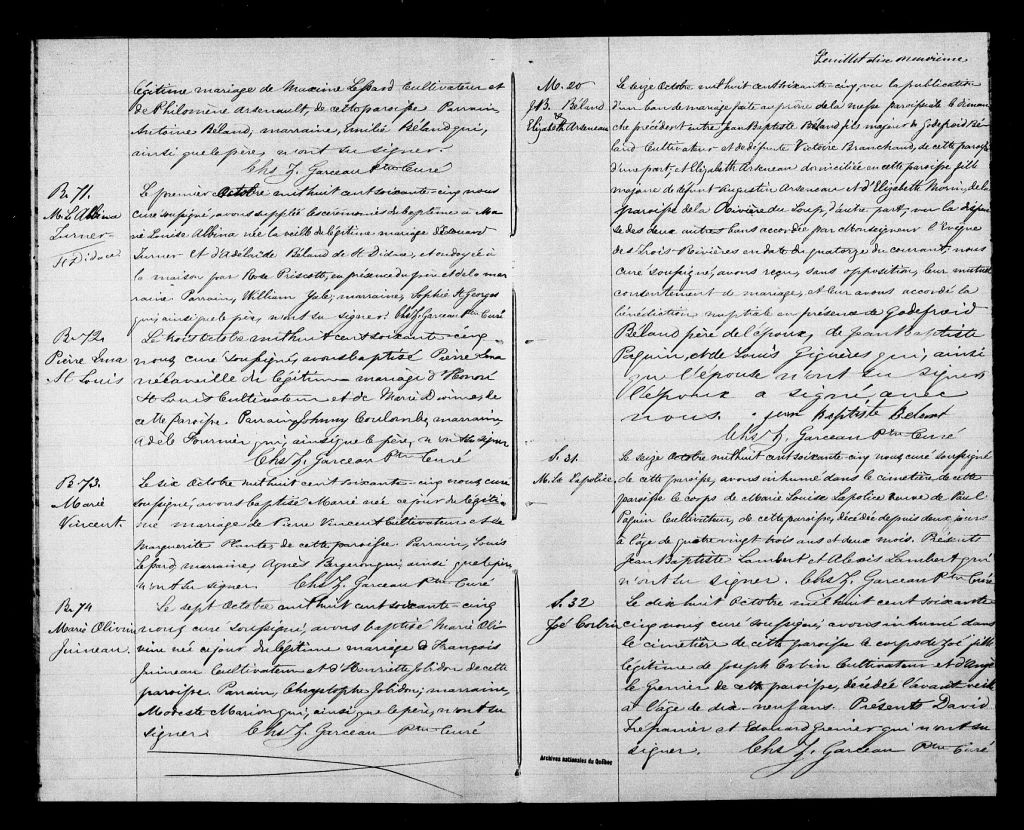 légitime mariage de Maxime Lessard Cultivateur et
de Philomène Arsenault, de cette paroisse Parrain
Antoine Béland, marraine, Emilie Béland qui,
ainsi que le père, n'ont su signer.
Chs Z. Garceau Ptre Curé
B. 71.
M. L. Albina
Turner
St Didace
Le premier Octobre mil huit cent soixante-cinq nous
curé soussigné, avons suppléé les cérémonies de baptême à Ma
rie Louise Albina née la veille du légitime mariage d'Edouard
Turner et d'Adelaïde Béland de St Didace, et ondoyée à
la maison par Rose Priscott, en présence du père et de la mar
raine. Parrain, William Yale; marraine, Sophie St Georges
qui, ainsi que le père, n'ont su signer. Chs Z. Garceau Ptre Curé
B. 72.
Pierre Ema
St Louis
Le trois Octobre mil huit cent soixante-cinq
nous, curé soussigné, avons baptisé Pierre Ema
né la veille du légitime mariage d'Honoré
St Louis Cultivateur et de Marie Divines de
cette paroisse. Parrain, Johnny Coulombe, marraine
Adele Fournier qui, ainsi que le père, n'ont su signer
Chs Z. Garceau Ptre Curé
B. 73.
Marie
Vincent
Le six Octobre mil huit cent soixante-cinq nous curé
soussigné, avons baptisé Marie née ce jour du légiti-
me mariage de Pierre Vincent Cultivateur et de
Marguerite Plante, de cette paroisse Parrain, Louis
Lessard, marraine, Agnès Bergeron qui, ainsi que le père
n'ont su signer. Chs Z. Garceau Ptre Curé
B. 74
Marie Olivine
Juineau.
Le sept Octobre mil huit cent soixante-cinq
nous curé soussigné, avons baptisé Marie Oli
vine née ce jour du légitime mariage de François
Juineau Cultivateur et d'Henriette Jolidon de cette
paroisse. Parrain, Chrystophe Jolidon; marraine,
Modeste Marion qui, ainsi que le père, n'ont su
signer. Chs Z. Garceau Ptre Curé
Feuillet dix neuvième
M. 20
J. B. Béland
&
Elizabeth Arseneau
Le seize Octobre mil huit cent soixante-cinq, vu la publication
d'un ban de mariage faite au prône de la messe paroissiale le diman
che précédent entre Jean Baptiste Béland fils majeur de Godefroid Bé
land Cultivateur et de défunte Victoire Branchaud, de cette paroisse
d'une part; et Elizabeth Arseneau domiciliée en cette paroisse fille
majeure de défunt Augustin Arseneau et d'Elizabeth Morin, de la
paroisse de la Rivière du Loup, d'autre part; vu la dispen
se des deux autres bans accordée par Monseigneur l'Evêque
des Trois-Rivières en date du quatorze du courant; nous
curé soussigné, avons reçu, sans opposition, leur mutuel
consentement de mariage, et leur avons accordé la
bénédiction nuptiale en présence de Godefroid
Béland père de l'époux, de Jean Baptiste
Paquin, et de Louis Gignères qui, ainsi
que l'épouse n'ont su signer
L'époux a signé avec
nous. jean Baptiste Beland
Chs Z. Garceau Ptre Curé
S. 31.
M. Le Lapolice
Le seize Octobre mil huit cent soixante-cinq nous curé soussigné
de cette paroisse, avons inhumé dans le cimetière de cette
paroisse le corps de Marie Louise Lapolice veuve de Paul
Paquin Cultivateur, de cette paroisse, décédée depuis deux jours
à l'âge de quatre vingt trois ans et deux mois. Présents
Jean Baptiste Lambert et Alexis Lambert qui
n'ont su signer. Chs Z. Garceau Ptre Curé
S. 32
Joé Corbin
Le dix huit Octobre mil huit cent soixante
cinq nous curé soussigné, avons inhumé dans
le cimetière de cette paroisse le corps de Joé fils
légitime de Joseph Corbin Cultivateur et d'Angé
le Grenier de cette paroisse, décédée l'avant veille
à l'âge de dix-neuf ans. Présents David
Trepanier et Edouard Grenier qui n'ont su
signer. Chs Z. Garceau Ptre Curé
Archives nationales du Québec